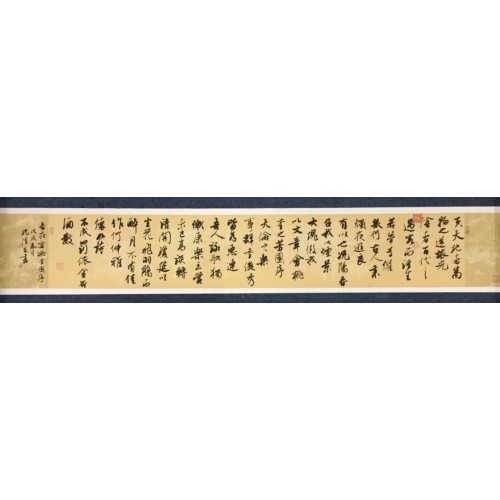 夫天地者萬
物之逆旅光
陰者百代之
過客而浮生
若夢為歡
幾何古人秉
燭夜遊良
有以也況陽春
召我以煙景
大塊假我
以文章會桃
李之芳園序
天倫之樂
事群季俊秀
皆為惠連
吾人詠歌獨
慚康樂幽賞
未已高談轉
清開瓊筵以
坐花飛羽觴而
醉月不有佳
作何伸雅
懷如詩
不成罰依金谷
酒數
春夜宴桃李園序
戊戌春月